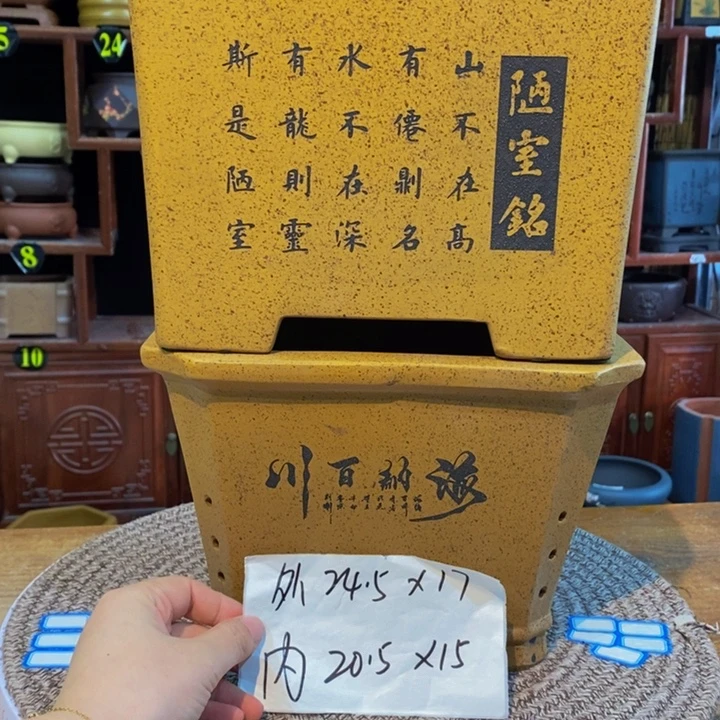 陋室銘
山不在高
有僊剿名
水不在深
有龍則靈
斯是陋室
海納百川
外 24.5 x 17
内 20.5 x 15
5
24
8
10